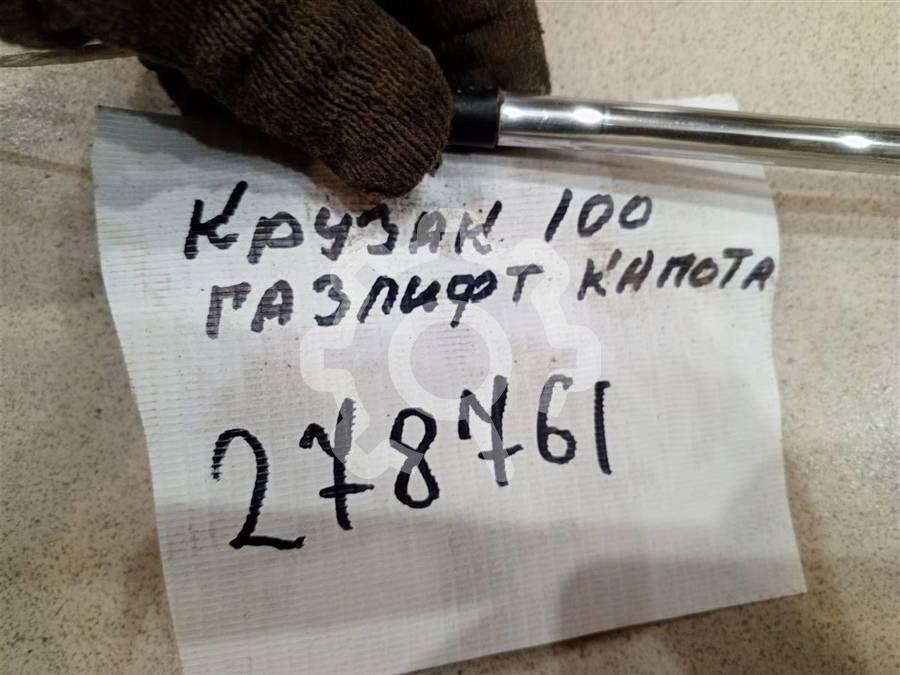 Крузак 100
газлифт капота
278761